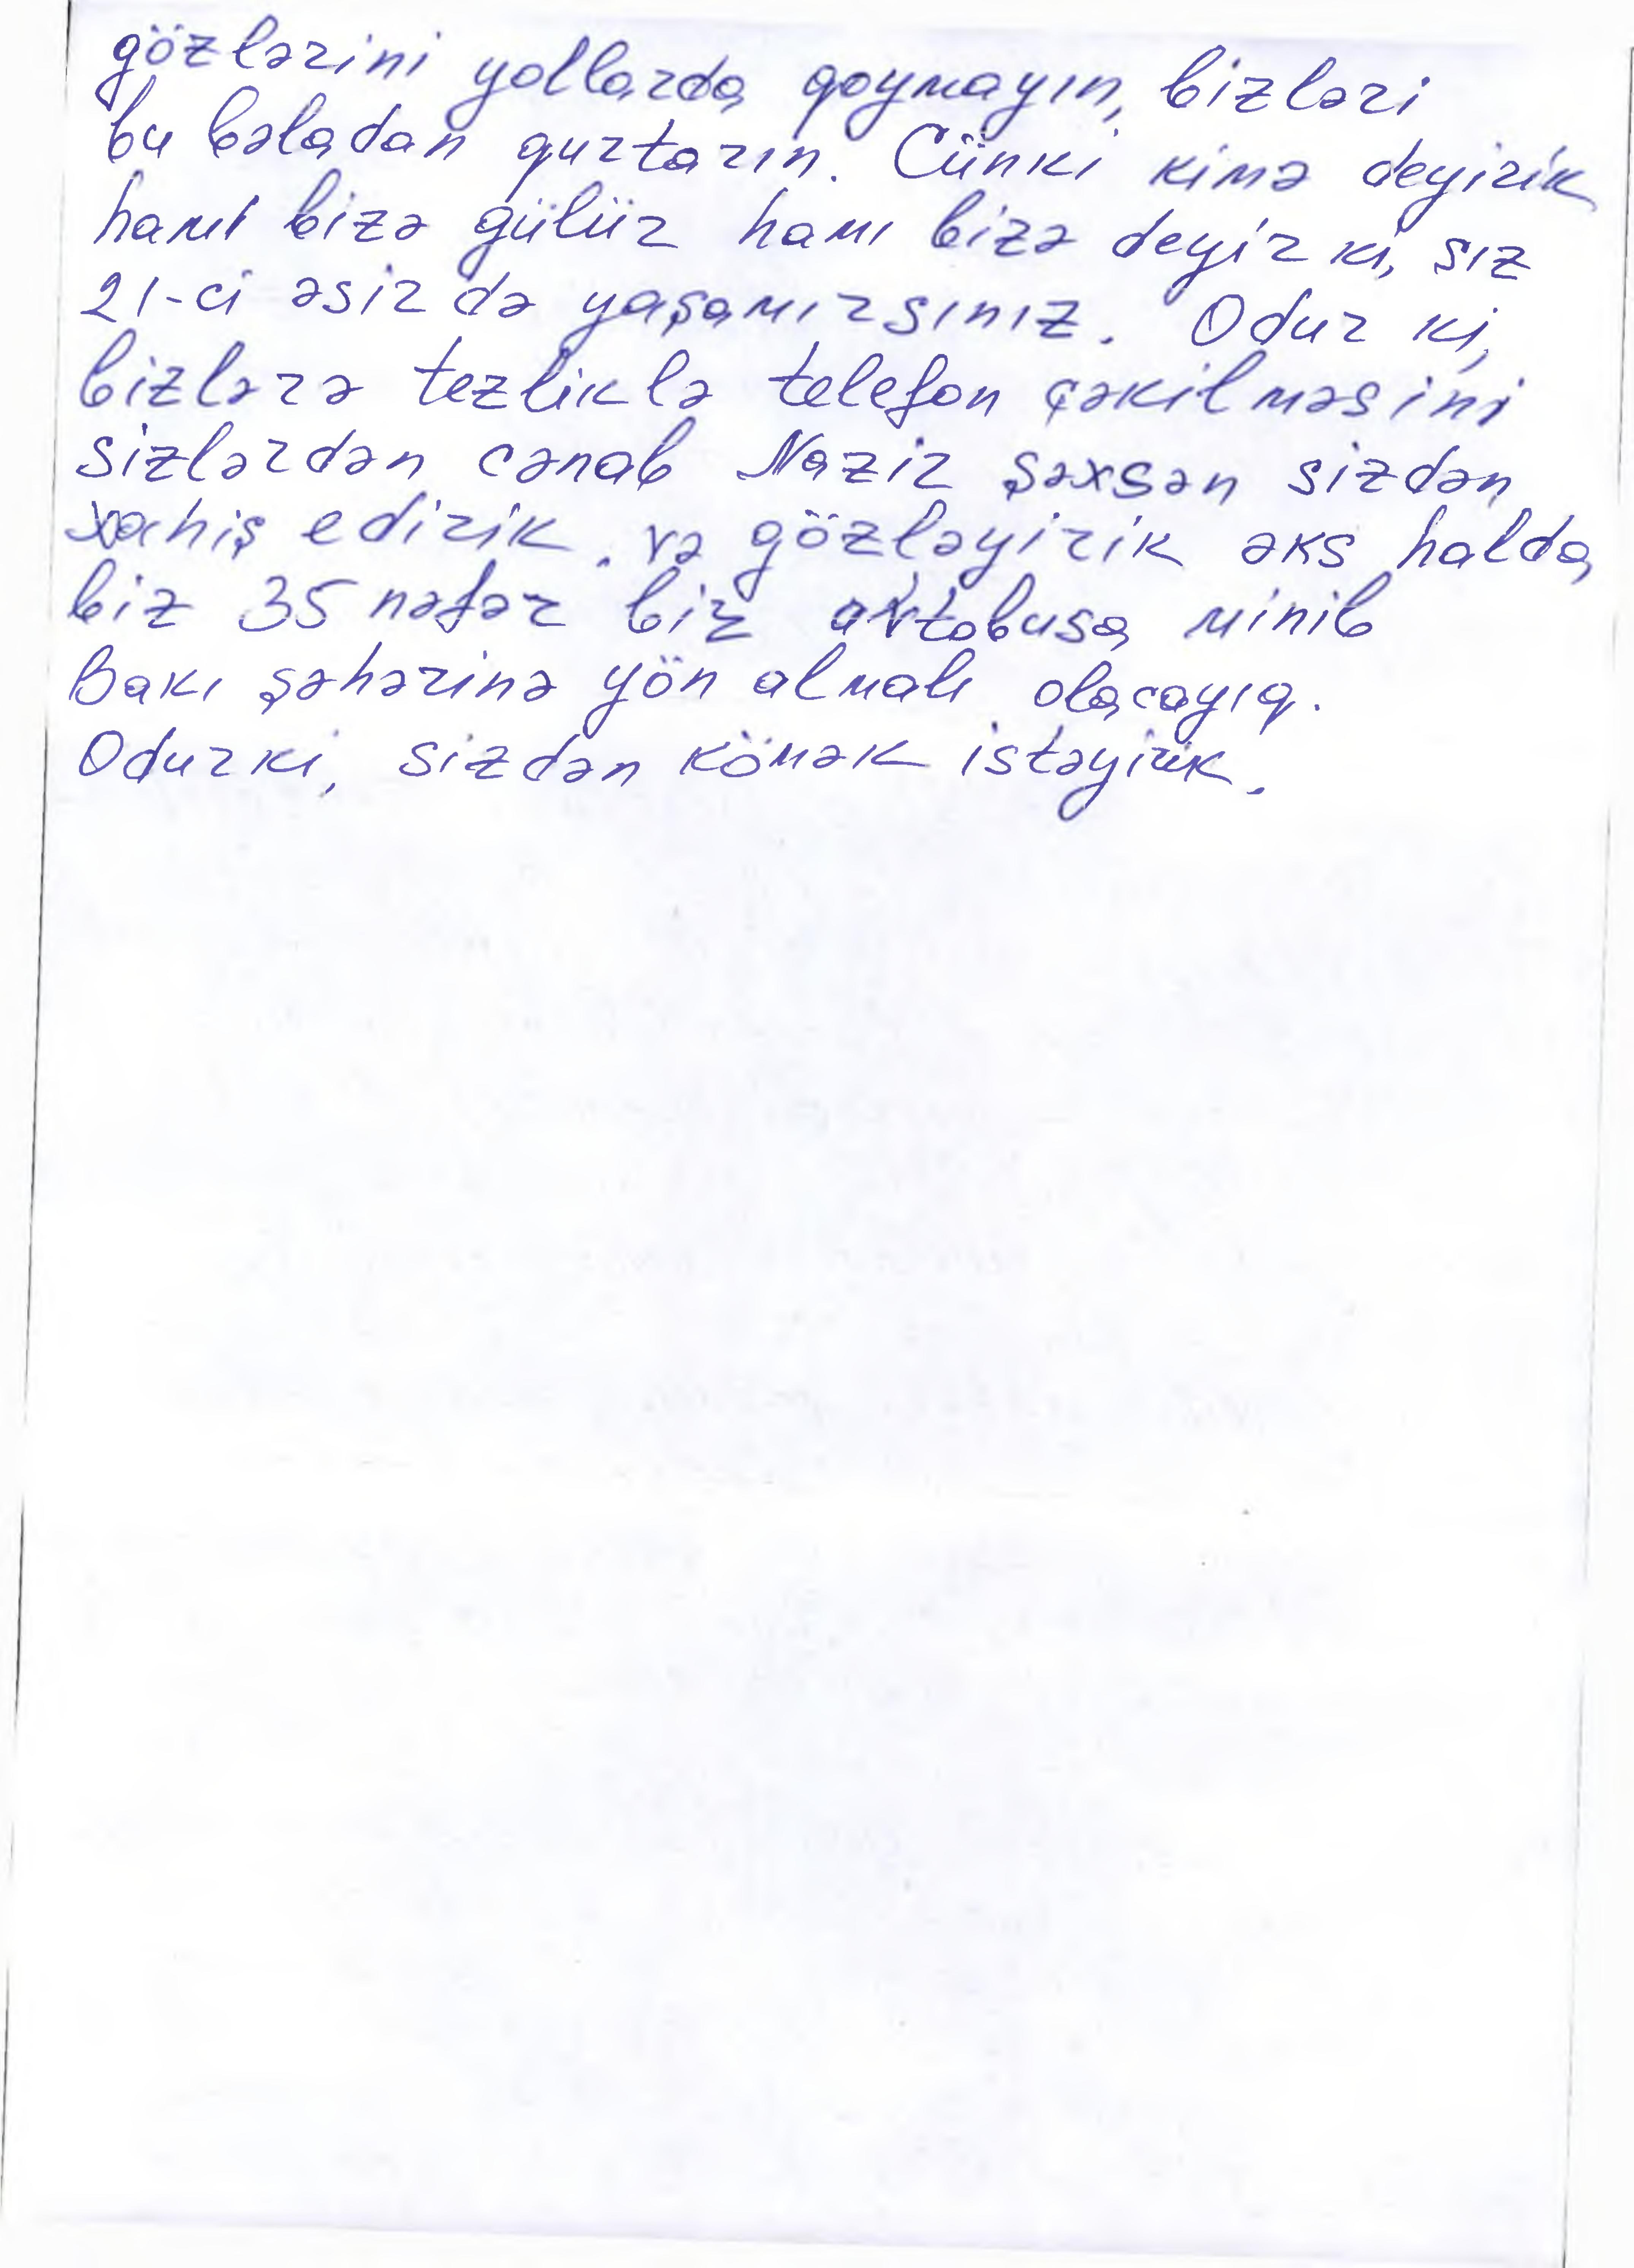 gözlərini yollarda qoymayın, bizləri
bu bəladan qurtarın. Cünki kimə deyirik
hamı bizə gülür hamı bizə deyir ki, sız
21-ci əsirdə yaşamırsınız. Odur ki,
bizlərə tezliklə telefon çəkilməsini
sizlərdən cənab Nazir şəxsən sizdən
xahiş edirik. və gözləyirik əks halda
biz 35 nəfər bir avtobusa minib
Bakı şəhərinə yön almalı olacayıq.
Odurki, sizdən kömək istəyirik.